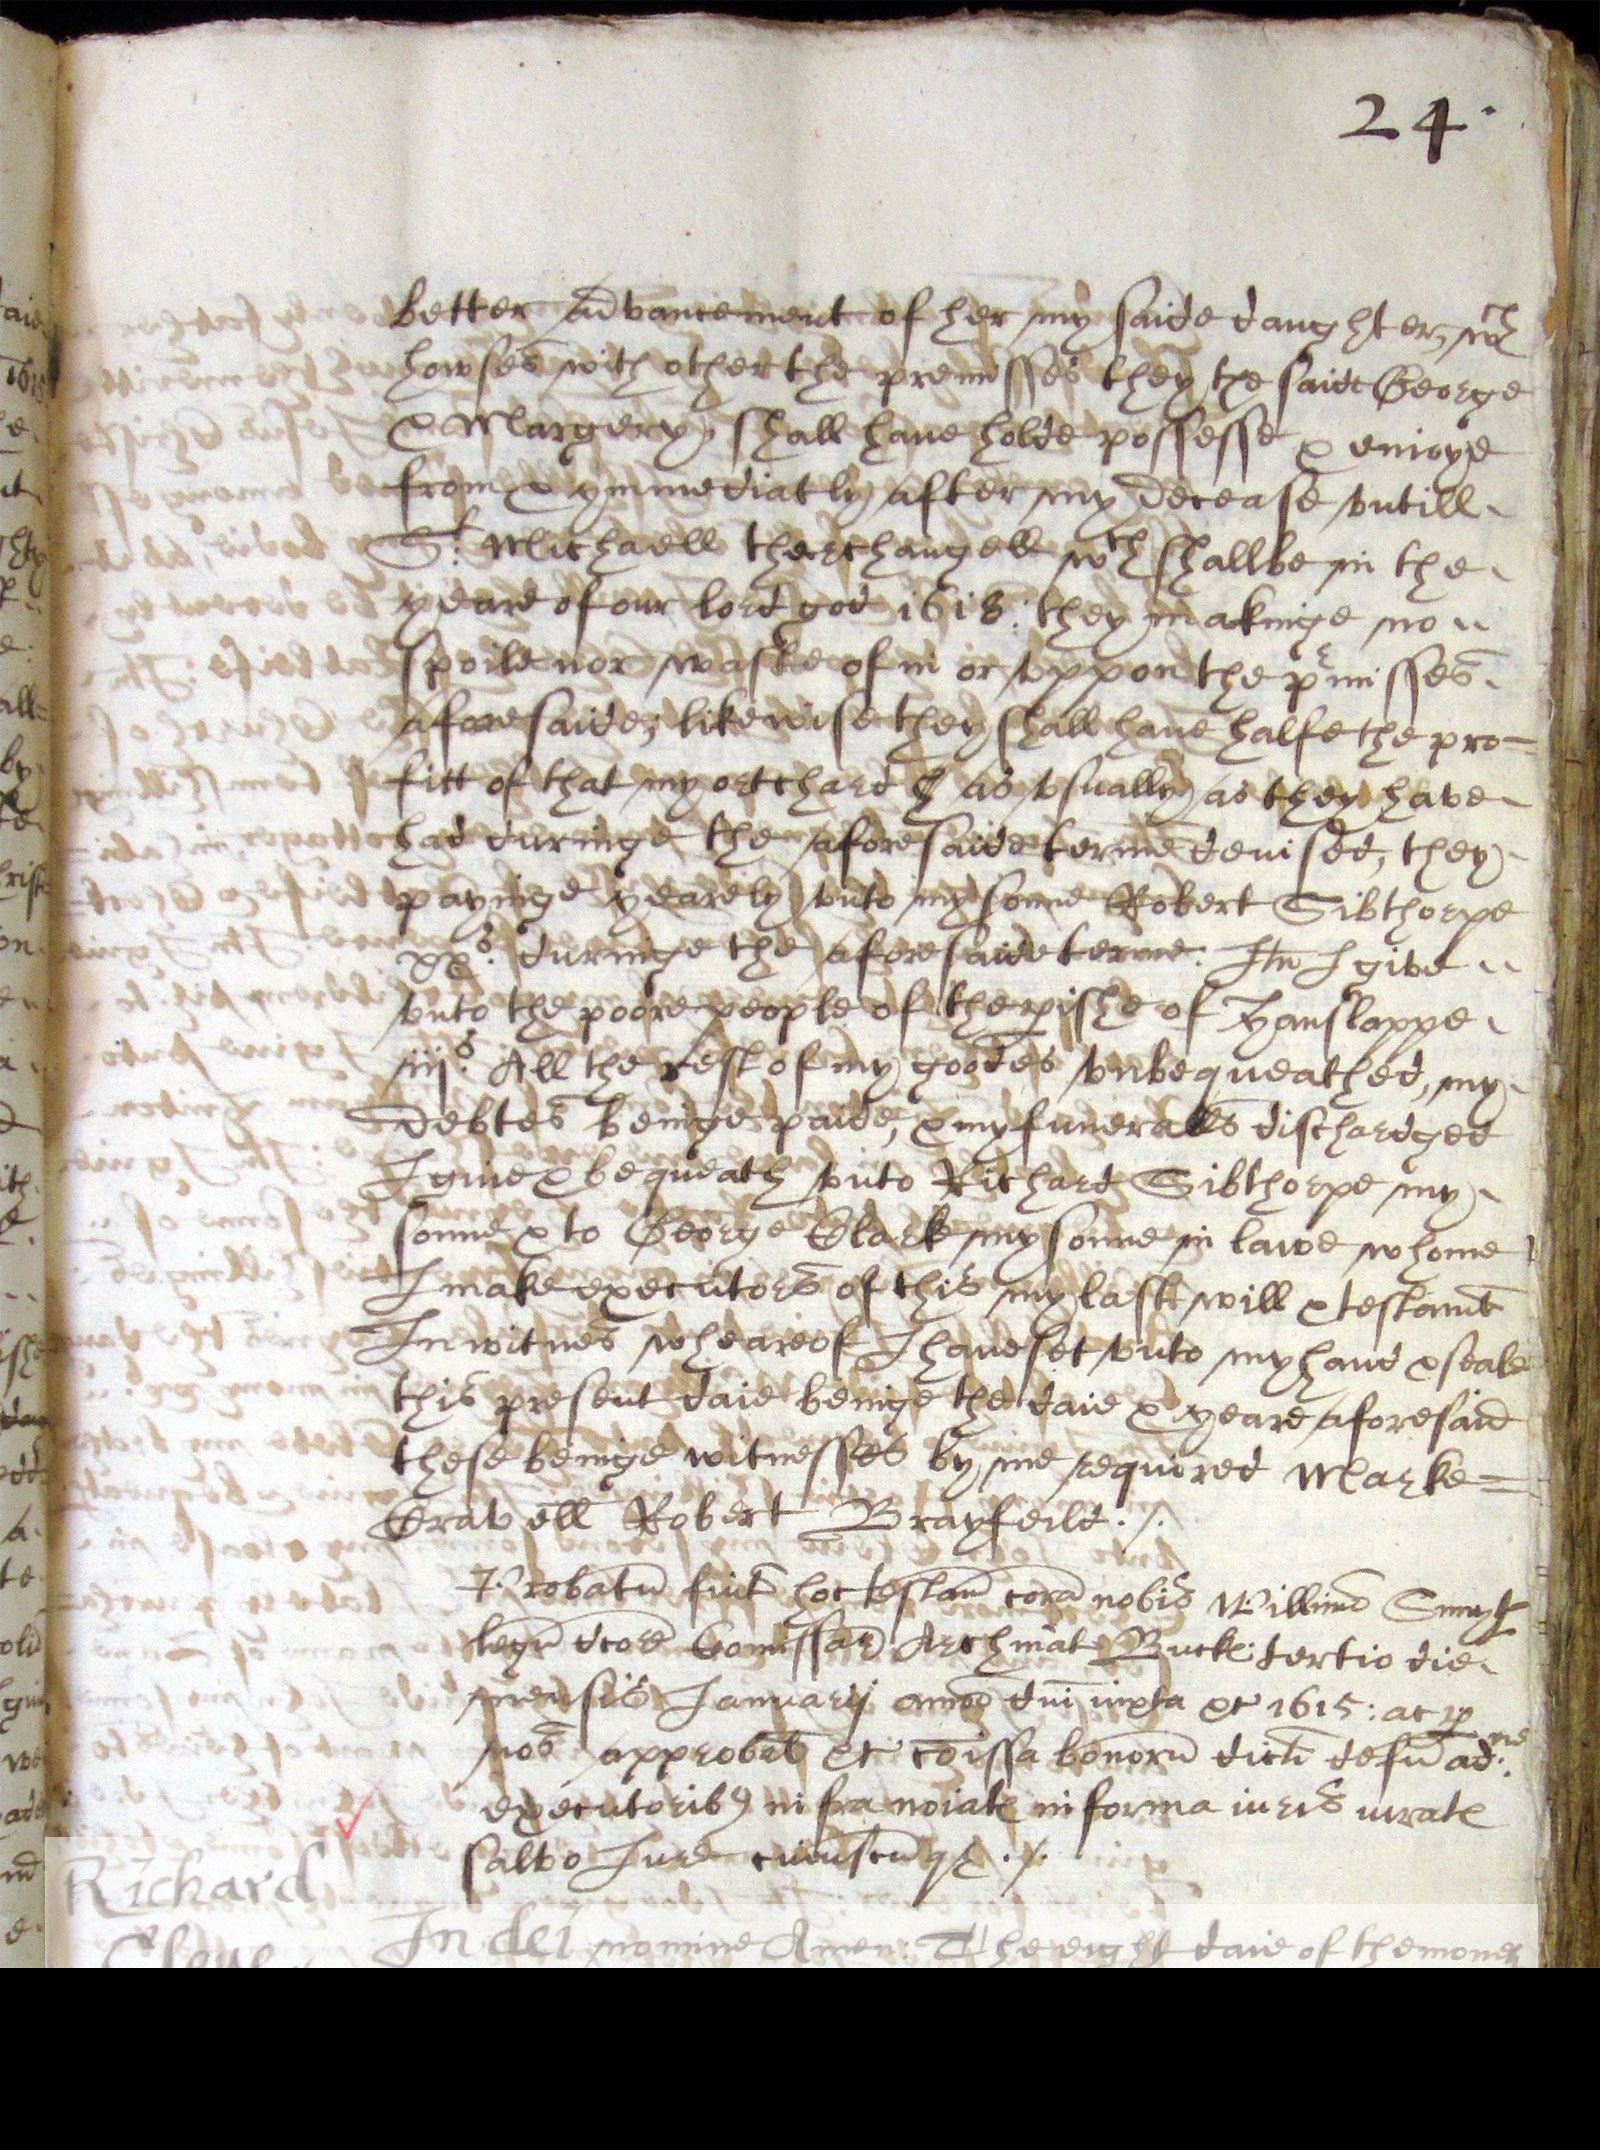 24.
better advancement of her my saide daughter, wch
howses with other the premisses they the saide George
& Margery, shall have holde possesse & enioye
from & ymmediatly after my decease vntill
St. Michaell tharchangell wch shallbe in the
yeare of our lord god 1618: they makinge no
spoile nor waste of in or vppon the prmisses
aforesaide; likewise they shall have halfe the pro=
fitt of that my ortchard as vsually as they have
had duringe the aforesaide terme devised, they
payinge yearely vnto my sonne Robert Sibthorpe
xxs. duringe the aforesaide terme. Itm I give
vnto the poore people of the pishe of Hanslappe
iijs. All the rest of my goodes vnbequeathed, my
Debtes beinge paide, & my funeralls dischardged
I give & bequeath vnto Richard Sibthorpe my
sonne & to George Clark my sonne in lawe whome
I make executors of this my last will & testamt
In witnes wheareof I have set vnto my hand & seale
this present daie beinge the daie & yeare aforesaid
these beinge witnesses by me required Marke=
Cravell Robert Brayfeild ./.
Probatu fuit hoc testam cora nobis Willimo Smyth
legu dcore Comissar Archinat Buck: tertio die
mensis Januarij anno dni iuxta &c 1615: ac p
nos approbat &c coissa bonoru dicti defu ad:ne
executorib9 infra noiat in forma iuris iurat
salvo Jure cuiuscuqz ./.
Richard
In dei nomine Amen. The eight daie of the moneth